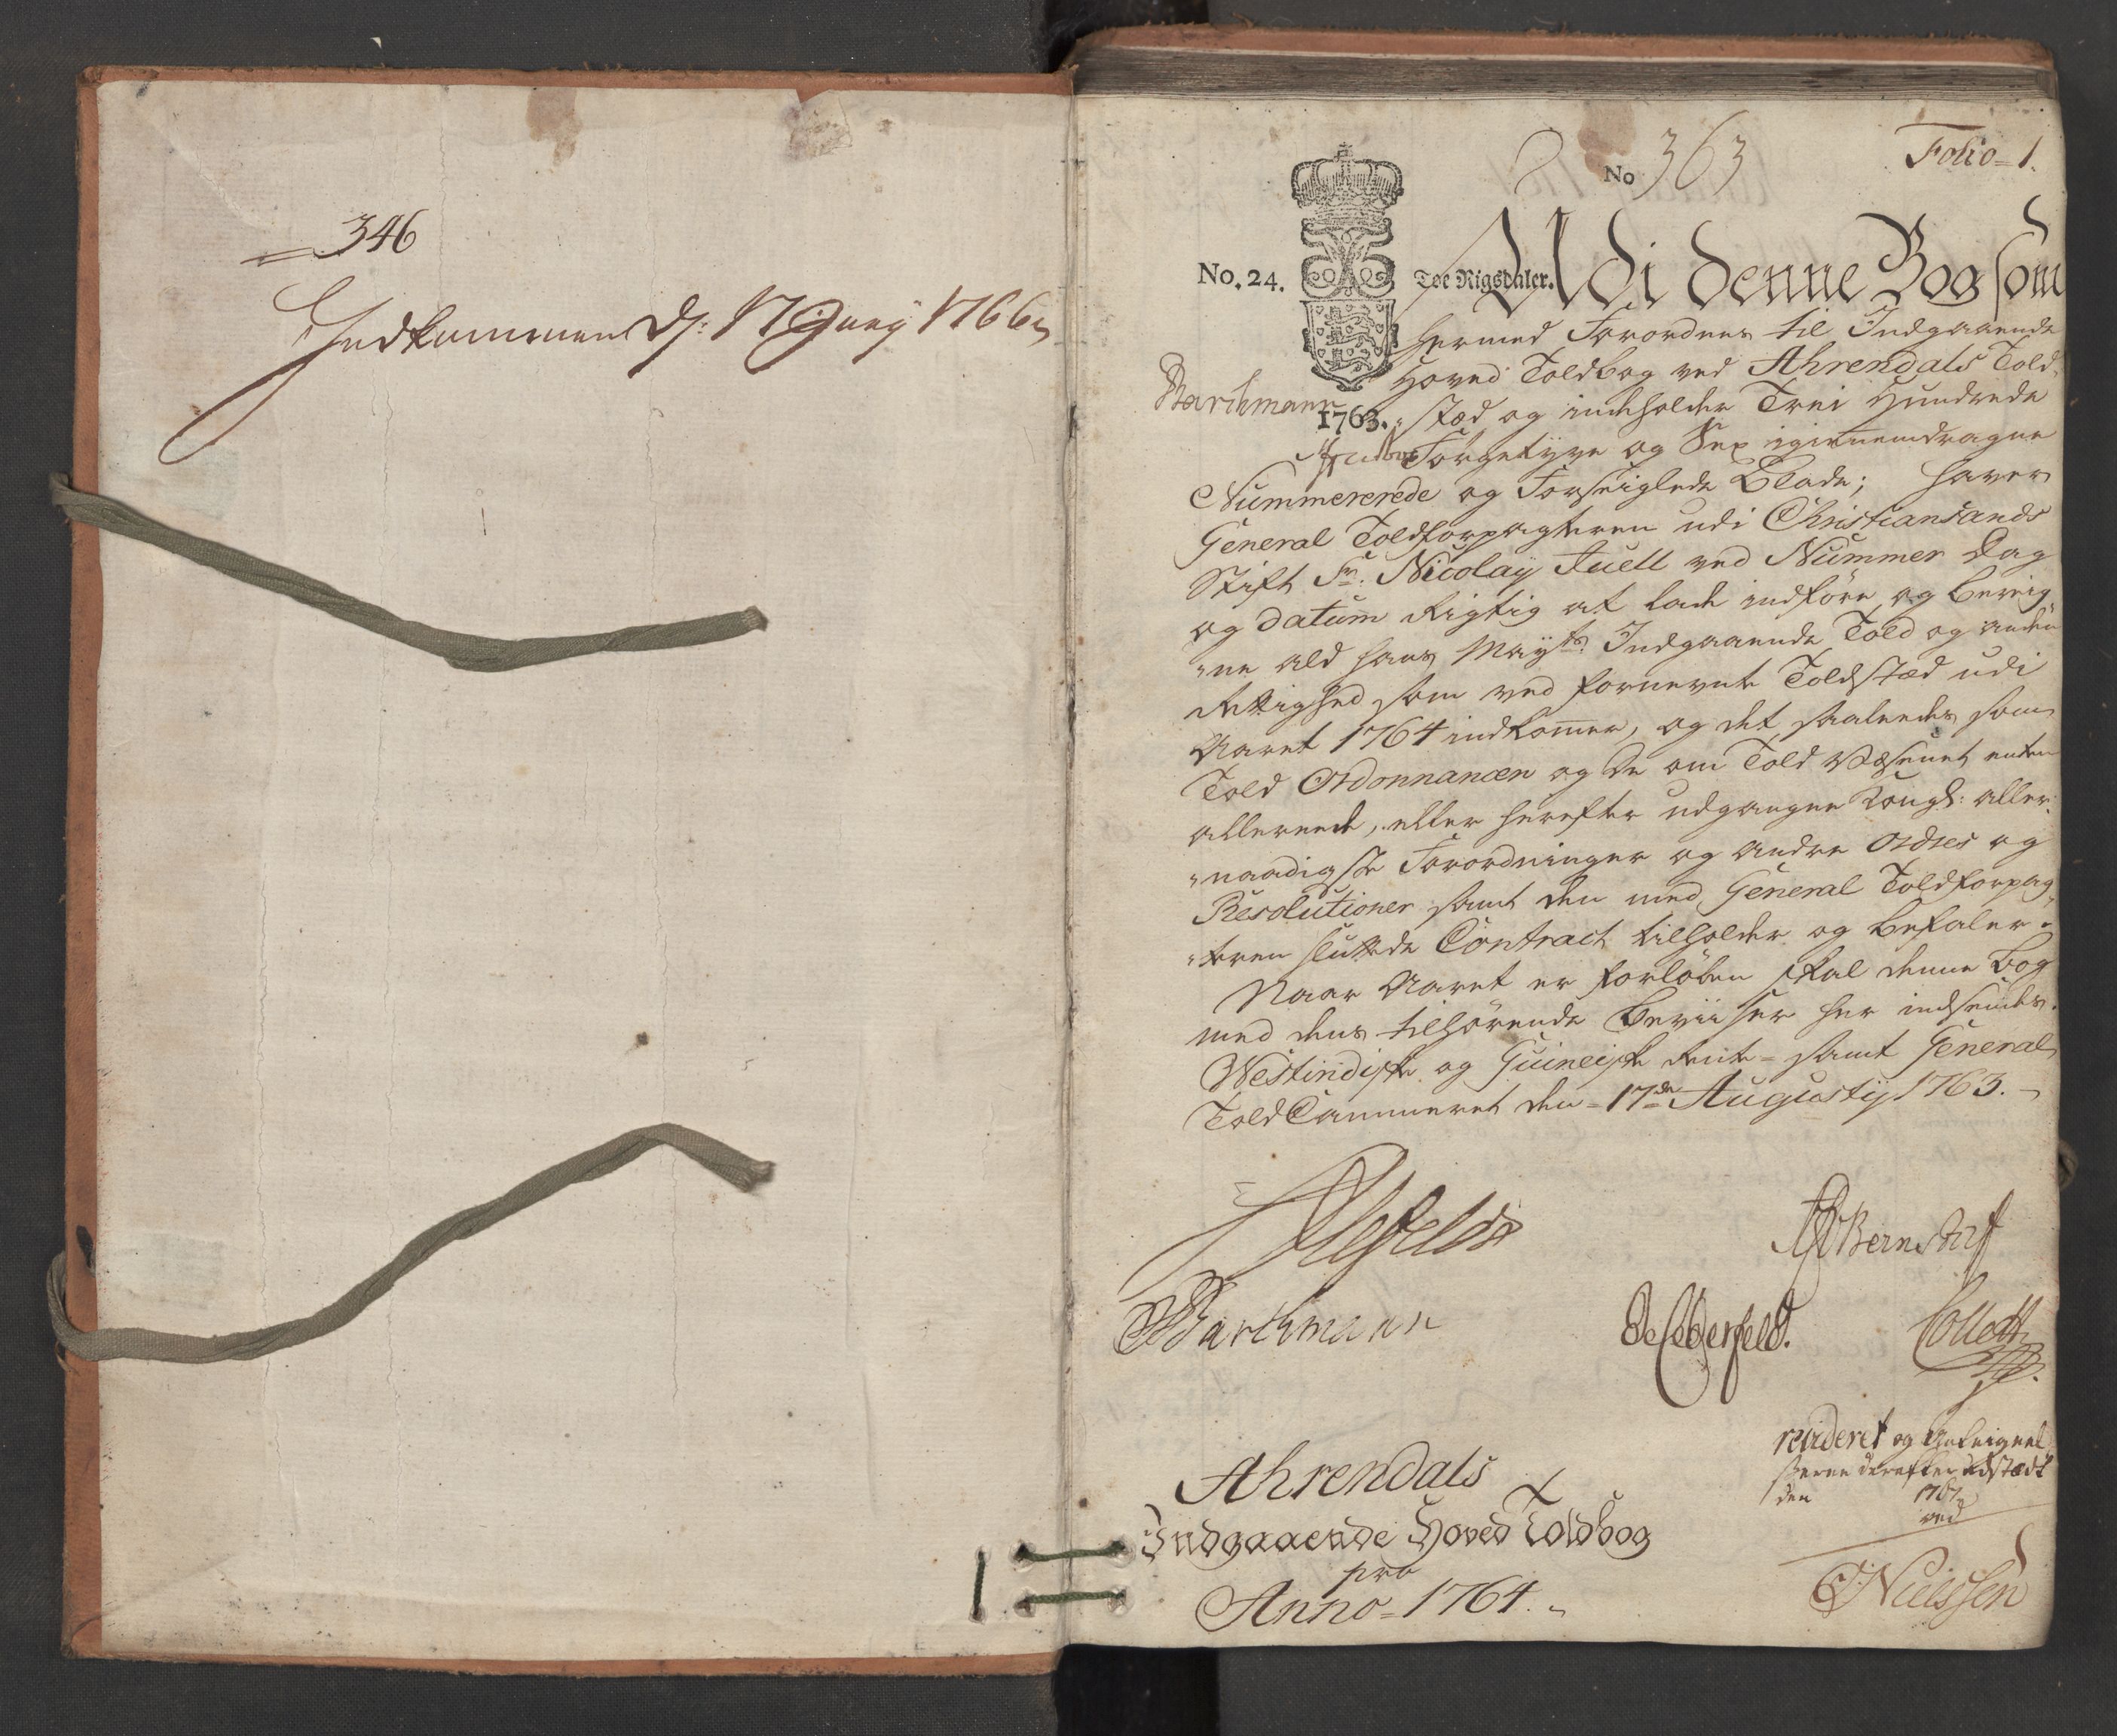 346
Indkommen d: 17 Juny 1766
No 363
Folio = 1.
No. 24.
Toe Rigsdaler.
1763.
Barthmann
Udi denne Bog som
hermed Forordnes til Indgaaende
Hoved Toldbog ved Ahrendals Told-
stæd og indeholder Trei Hundrede
Förgetyve og Sex igiennemdragne
Nummererede og Forseiglede Blade; haver
General Toldforpagteren udi Christiansands
Stift Sr. Nicolay Juell ved Nummer Dag
og Datum Rigtig at lade indföre og bereig-
ne ald hans Mayts. Indgaaende Told og anden
Rettighed som ved fornevnte Toldstæd udi
Aaret 1764 indkom̄er, og det saaledes som
Told Ordonnancen og de om Told Væsenet enten
allereede, eller herefter udgangne Kongl: aller-
naadigste Forordninger og andre Ordres og
Resolutioner samt den med General Toldforpag-
teren sluttede Contract tilholder og befaler.
Naar Aaret er forlöben skal denne Bog
med dens tilhörende Beviiser her indsendes.
Westindiske og Guineiske Rente- samt General
Told Cammeret den 17de Augustij 1763.
Ahlefeldt
Bernstorff
Barthmann
de Cederfeld.
Collett
Ahrendals
Indgaaende Hoved Toldbog
pro
Anno = 1764.
revideret og Anteignel
serne derefter udstædt
den 1767
ved
Nielssen